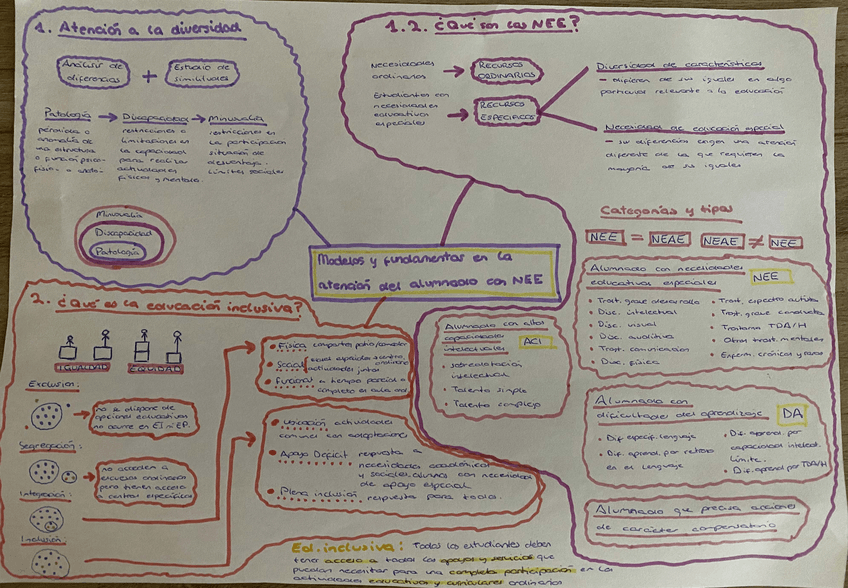 1. Atención a la diversidad
Análisis de
diferencias
+
Estudio de
similitudes
Patología → Discapacidad → Minusvalía
perdida o
anomalía de
una estructura
o función psico-
fisio- o anato-
restricciones o
limitaciones en
la capacidad
para realizar
actividades
físicas y mentales.
restricciones en
la participación
situación de
desventaja.
Límites sociales
Minusvalía
Discapacidad
Patología
1.2. ¿Qué son las NEE?
Necesidades
ordinarias
RECURSOS
ORDINARIOS
Estudiantes con
necesidades
educativas
especiales
RECURSOS
ESPECÍFICOS
Diversidad de características
- difieren de sus iguales en algo
particular relevante a la educación
Necesidad de educación especial
- su diferencias exigen una atención
diferente de la que requieren la
mayoría de sus iguales
Modelos y fundamentar en la
atención del alumnado con NEE
Categorías y tipos
NEE = NEAE NEAE ≠ NEE
Alumnado con necesidades
educativas especiales
NEE
• Trast. grave desarrollo
• Disc. intelectual
• Disc. visual
• Disc. auditiva
• Trast. comunicación
• Disc. física
• Trast. espectro autista
• Trast. grave conducta
• Trastorno TDA/H
• Otros trast. mentales
• Enferm. crónicas y raras
Alumnado con altas
capacidades
intelectuales
ACI
• sobredotación
intelectual
• Talento simple
• Talento complejo
Alumnado con
dificultades del aprendizaje
DA
• Dif. específ. lenguaje
• Dif. aprend. por retraso
en el lenguaje
• Dif. aprend. por
capacidad intelect.
límite.
• Dif. aprend por TDA/H
Alumnado que precisa acciones
de carácter compensatorio
2. ¿Qué es la educación inclusiva?
IGUALDAD
EQUIDAD
Exclusión:
no se dispone de
opciones educativas
no ocurre en EI ni EP.
Segregación:
no acceden a
recursos ordinarios
pero tienen acceso
a centros específicos
Integración:
Inclusión:
• Física comparten patio/comedor
• Social
actividades juntos
• Funcional a tiempo parcial o
completo en aula ord.
• Ubicación actividades
común con adaptaciones
• Apoyo Deficit respuesta a
necesidades académicas
y sociales alumnos con necesidades
de apoyo especial
• Plena inclusión respuesta para todos.
Ed. inclusiva: Todos los estudiantes deben
tener acceso a todos los apoyos y servicios que
puedan necesitar para una completa participación en las
actividades educativas y curriculares ordinarias